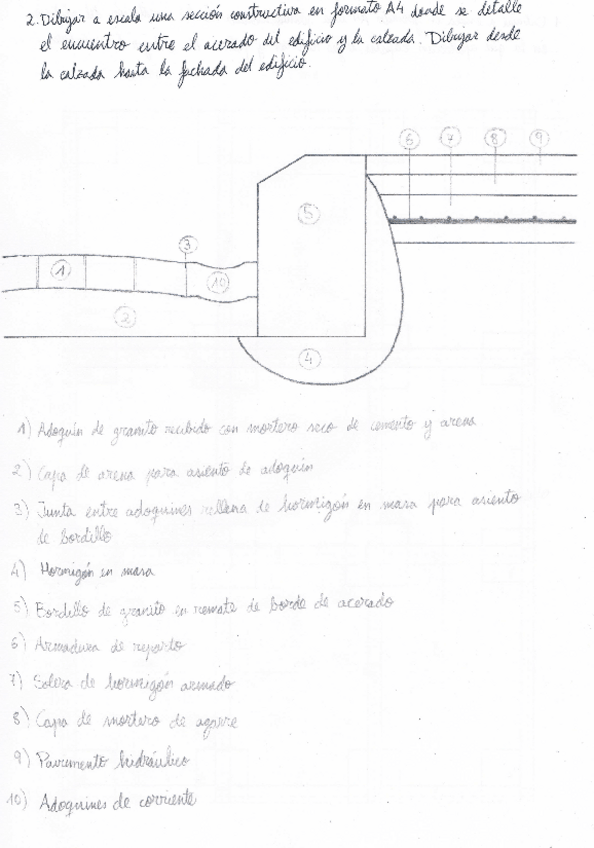 2. Dibujar a escala una sección constructiva en formato A4 donde se detalle
el encuentro entre el acerado del edificio y la calzada. Dibujar desde
la calzada hasta la fachada del edificio.
6 7 8 9
5
3
1 10
2
4
1) Adoquín de granito recibido con mortero seco de cemento y arena
2) Capa de arena para asiento de adoquín
3) Junta entre adoquines rellena de hormigón en masa para asiento
de bordillo
4) Hormigón en masa
5) Bordillo de granito en remate de borde de acerado
6) Armadura de reparto
7) Solera de hormigón armado
8) Capa de mortero de agarre
9) Pavimento hidráulico
10) Adoquines de corriente